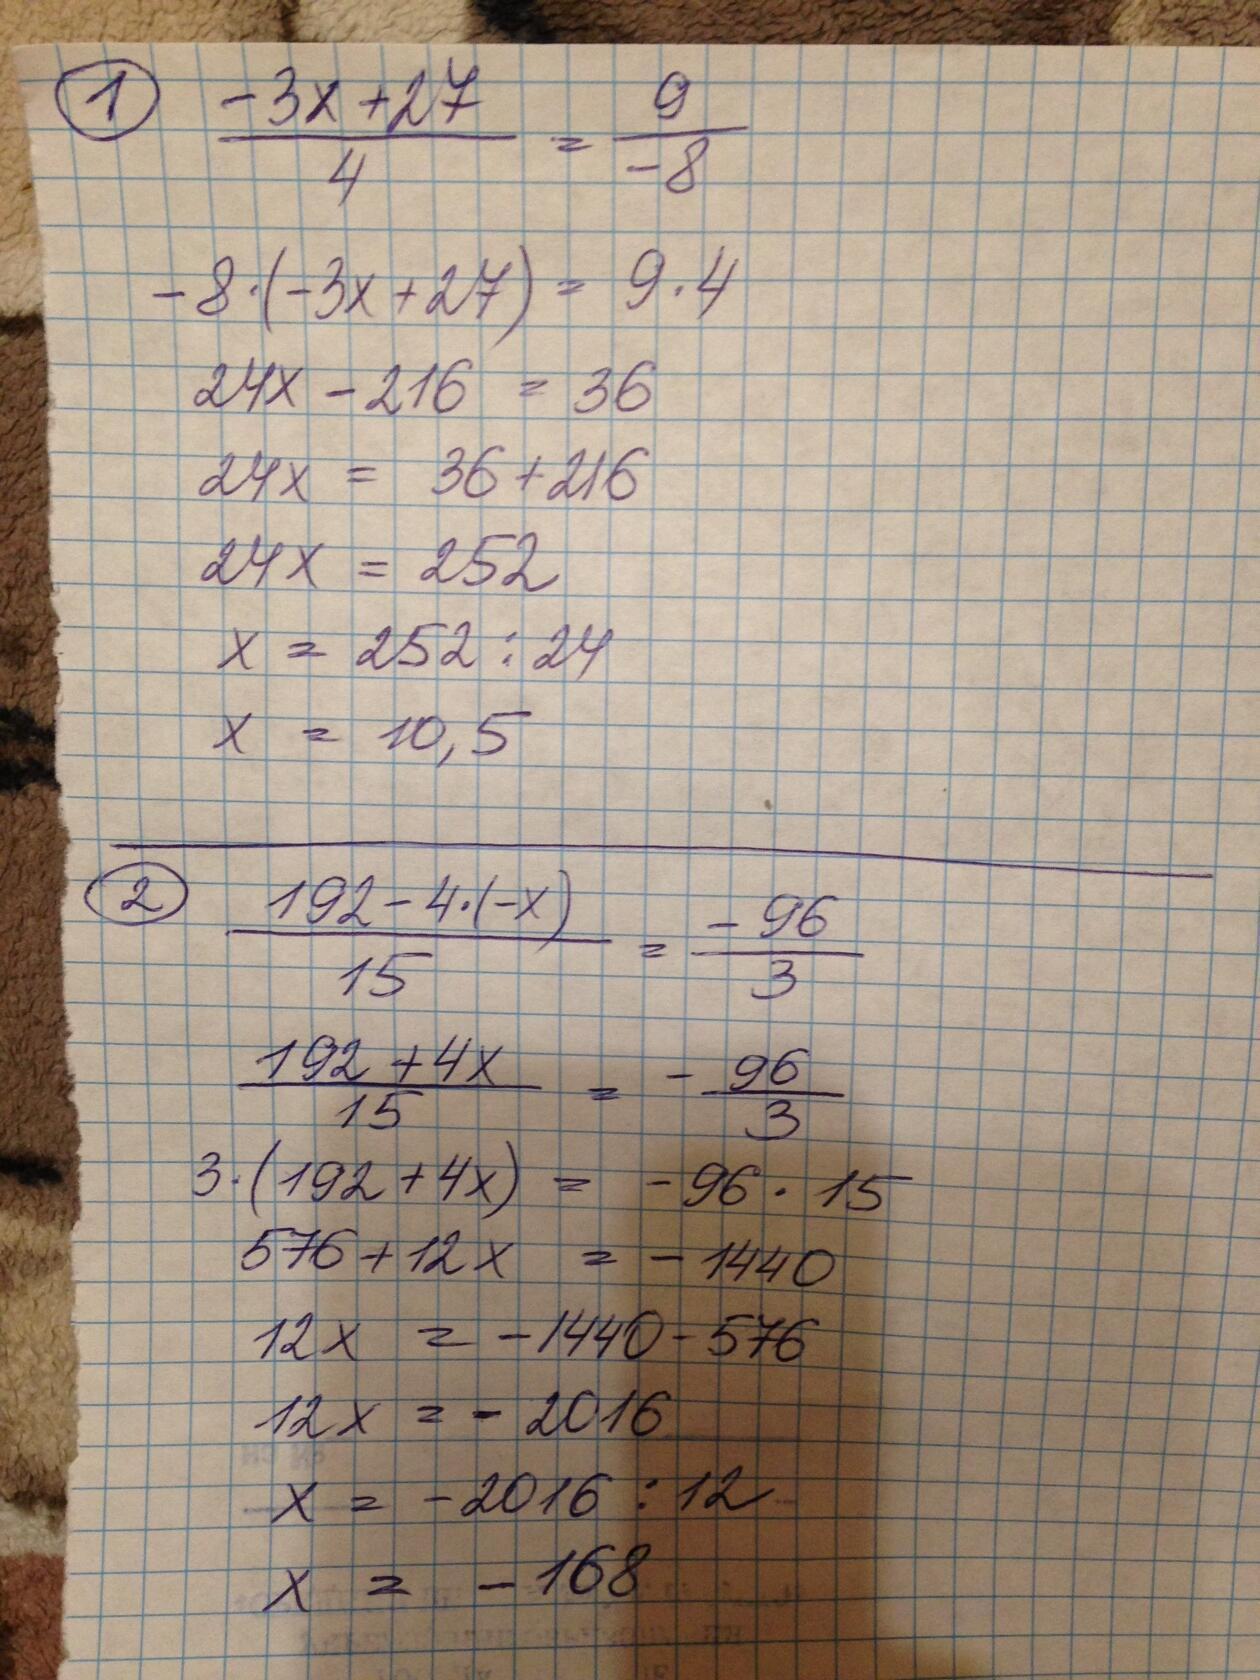 1 -3x+27/4 = 9/-8
-8·(-3x+27) = 9·4
24x - 216 = 36
24x = 36+216
24x = 252
x = 252 : 24
x = 10,5
2 192-4·(-x)/15 = -96/3
192+4x/15 = -96/3
3·(192+4x) = -96·15
576+12x = -1440
12x = -1440-576
12x = -2016
x = -2016 : 12
x = -168